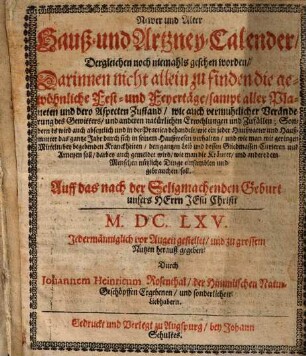 Newer und Alter
Hauß-und Artzney-Calender/
Dergleichen noch niemahls gesehen worden/
Darinnen nicht allein zu finden die ge-
wöhnliche Fest- und Feyertäge/ sampt aller Pla-
neten und dero Aspecten Zustand / wie auch vermuthlicher Verände-
rung deß Gewitters/ und anderen natürlichen Erwehlungen und Zufällen;
dern es wird auch absonderlich und in der Practica
matter das gantze Jahr durch sich in seinem Haußwesen verhalten / und wie man mit geringen
Mitteln bey begebenden Kranckheiten / den gantzen Leib und dessen Gliedmassen Curieren und
Artzneyen soll / darbey auch gemeldet wird / wie man die Kräuter und andere dem
Menschen nützliche Dinge einsamblen und
gebrauchen soll.
Auff das nach der Seligmachenden Geburt
unsers HErrn JEsu Christi
M. DC. LXV.
Jedermänniglich vor Augen gestellet/ und zu grossem
Nutzen herauß gegeben/
Durch
Johannem Heinricum Rosenthal / der Himmlischen Natur-
Geschöpffen Ergebenen / und sonderlichen
Liebhabern.
Gedruckt und Verlegt zu Augspurg / bey Johann
Schultes.